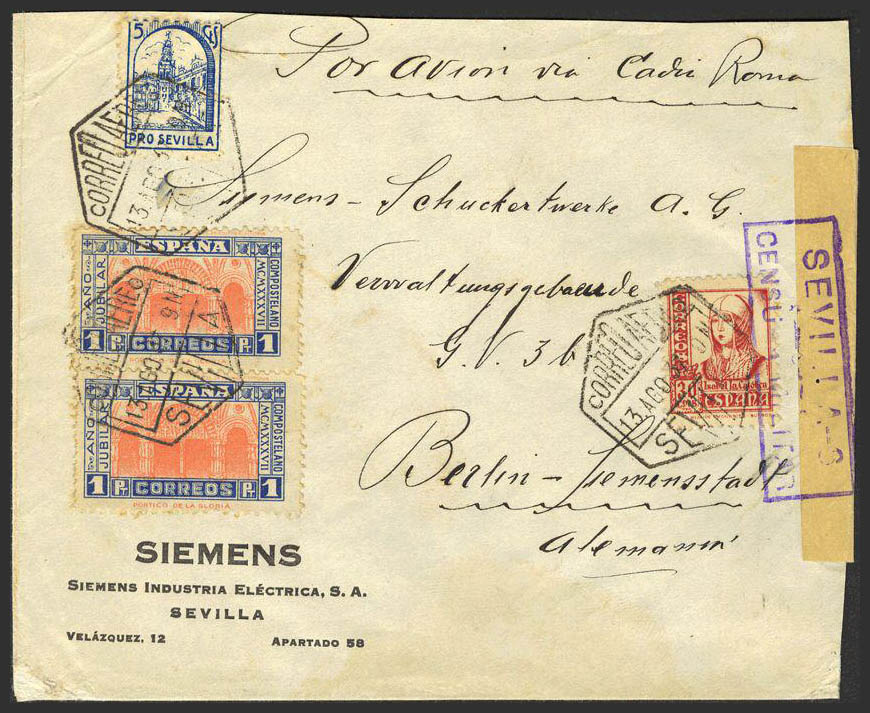 5 Cs
PRO SEVILLA
Por avion via Cadiz Roma
CORREO AEREO
13 AGO
Siemens - Schuckertwerke A. G.
Verwaltungsgebaeude
G. V. 3 b
Berlin - Siemensstadt
Alemania
ESPAÑA
AÑO JUBILAR
COMPOSTELANO
MCMXXXVII
1 Pta CORREOS Pta 1
CORREO AEREO
13 AGO 9 N
SEVILLA
ESPAÑA
AÑO JUBILAR
COMPOSTELANO
MCMXXXVII
1 Pta CORREOS Pta 1
PÓRTICO DE LA GLORIA
CORREOS
30
Isabel la Católica
ESPAÑA
CORREO AEREO
13 AGO
SEVILLA
SEVILLA-3
CENSURA MILITAR
SIEMENS
SIEMENS INDUSTRIA ELÉCTRICA, S. A.
SEVILLA
VELÁZQUEZ, 12 APARTADO 58